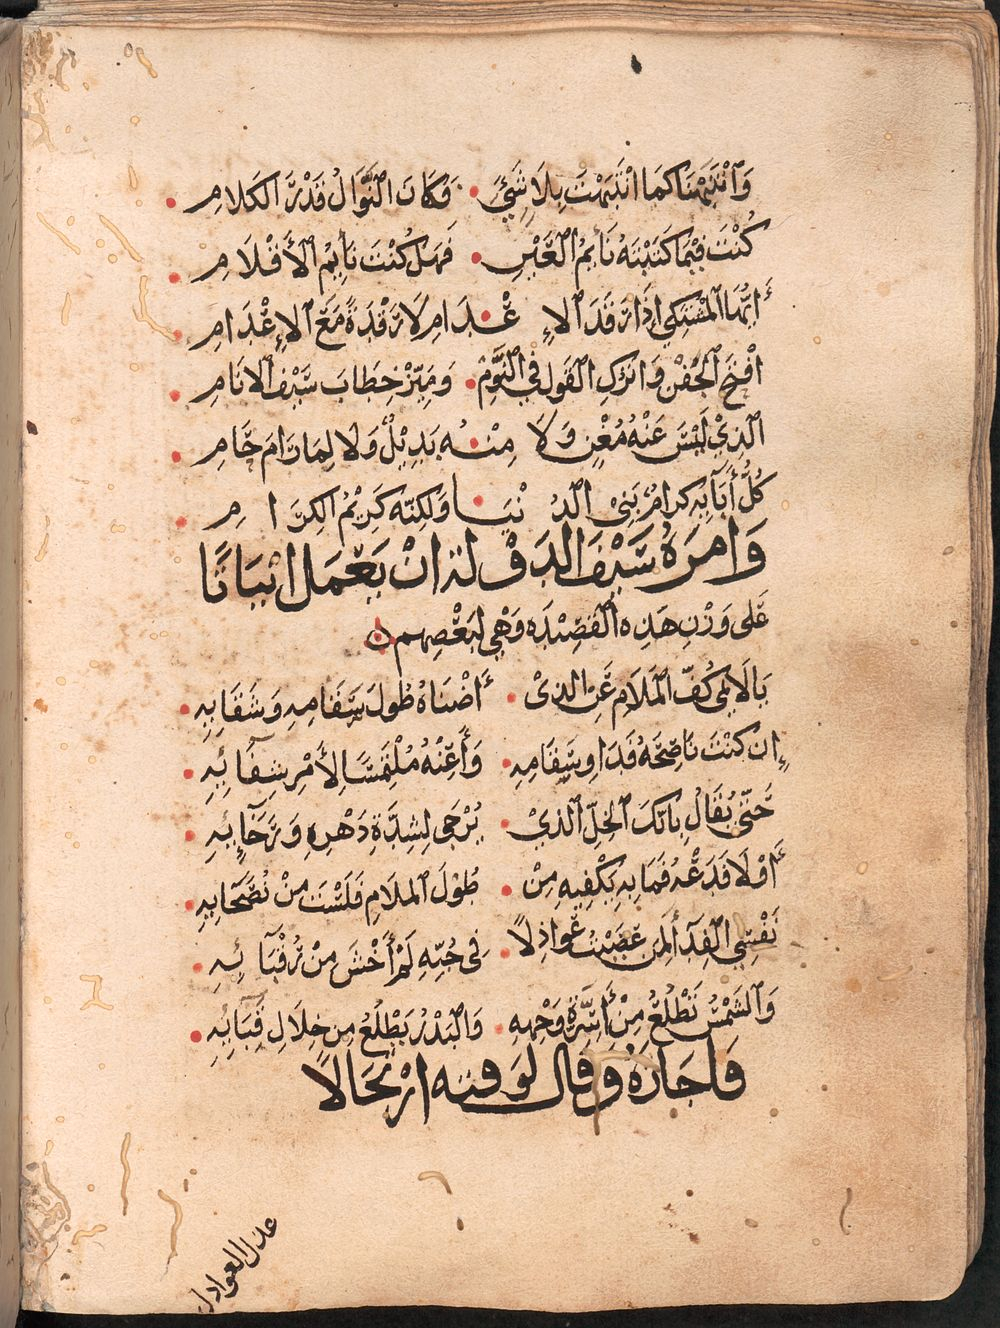 وَٱنْتَبَهْنَا كَمَا انْتَبَهْتَ بِلَا شَيْءٍ • فَكَانَ النَّوَالُ قَدْرَ الكَلَامِ •
كُنْتَ فِيْمَا كَتَبْتَهُ نَائِمُ العَيْنِ • فَهَل كُنْتَ نَائِمُ الأَقْلَامِ •
أَيُّهَا المُشْتَكِي إِذَا رَقَدَ الاِ عْدَامِ لَا رَقْدَةً مَعَ الاِعْدَامِ •
افْتَحِ الجَفْنَ وَاتْرُكِ القَولَ فِي النَّوْمِ • وَمَيِّزْ خِطَابَ سَيْفِ الانَامِ •
الَّذِيْ لَيْسَ عَنْهُ مُغْنٍ وَلَا مِنْهُ بَدِيْلٌ وَلَا لِمَا رَامَ حَامِ •
كُلُّ أَبَآئِهِ كِرَامُ بَنِي الدُ نْيَا وَلَكِنَّهُ كَرِيْمُ الكِرَامِ •
وَامَرَهُ سَيْفَ الدَوْلَةِ انْ يَعْمَلَ ابْيَاتًا
عَلَى وَزْنِ هَذِهِ القَصِيْدَه وَهْيَ لِبَعْضِهِم ن
يَا لَائِمِي كُفَّ المَلَامِ عَنِ الذِيْ • أَضْنَاهُ طُولَ سَقَامِهِ وَشَقَائِهِ •
إِن كُنْتَ نَاصِحَهُ فَدَاوِ سَقَامِهِ • وَأَعِنْهُ مُلْتَمِسًا لأَمْرِ شِفَائِهِ •
حَتَّى يُقَالُ بِانَّكَ الخِلّ الَّذِيْ • يُرْجَى لِشِدَّةِ دَهْرِهِ وَرَخَآئِهِ •
أَوْ لَا فَدَعْهُ فَمَا بِهِ يَكْفِيهِ مِنْ • طُوْلِ المَلَامِ فَلَسْتَ مِنْ نُصَحَائِهِ •
نَفْسِي الفِدَآ لِمَن عَصَيْتُ عَوَاذِلًا • فِي حُبِّهِ لَمْ أَخْشَ مِنْ رُقَبَائِهِ •
وَالشَمْسُ تَطْلُعُ مِنْ أَسِرَّةِ وَجْهِهِ • وَالبَدْرُ يَطْلُعُ مِن خِلَالِ قَبَائِهِ •
فَاجَازَهُ وَقَالَ لِوَقْتِهِ ارْتِجَالًا
عذل العواذل